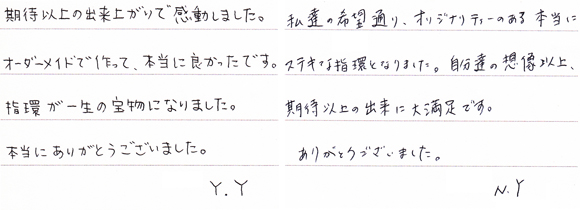 期待以上の出来上がりで感動しました。
オーダーメイドで作って、本当に良かったです。
指環が一生の宝物になりました。
本当にありがとうございました。
Y.Y
私達の希望通り、オリジナリティーのある本当に
ステキな指環となりました。自分達の想像以上、
期待以上の出来に大満足です。
ありがとうございました。
N.Y